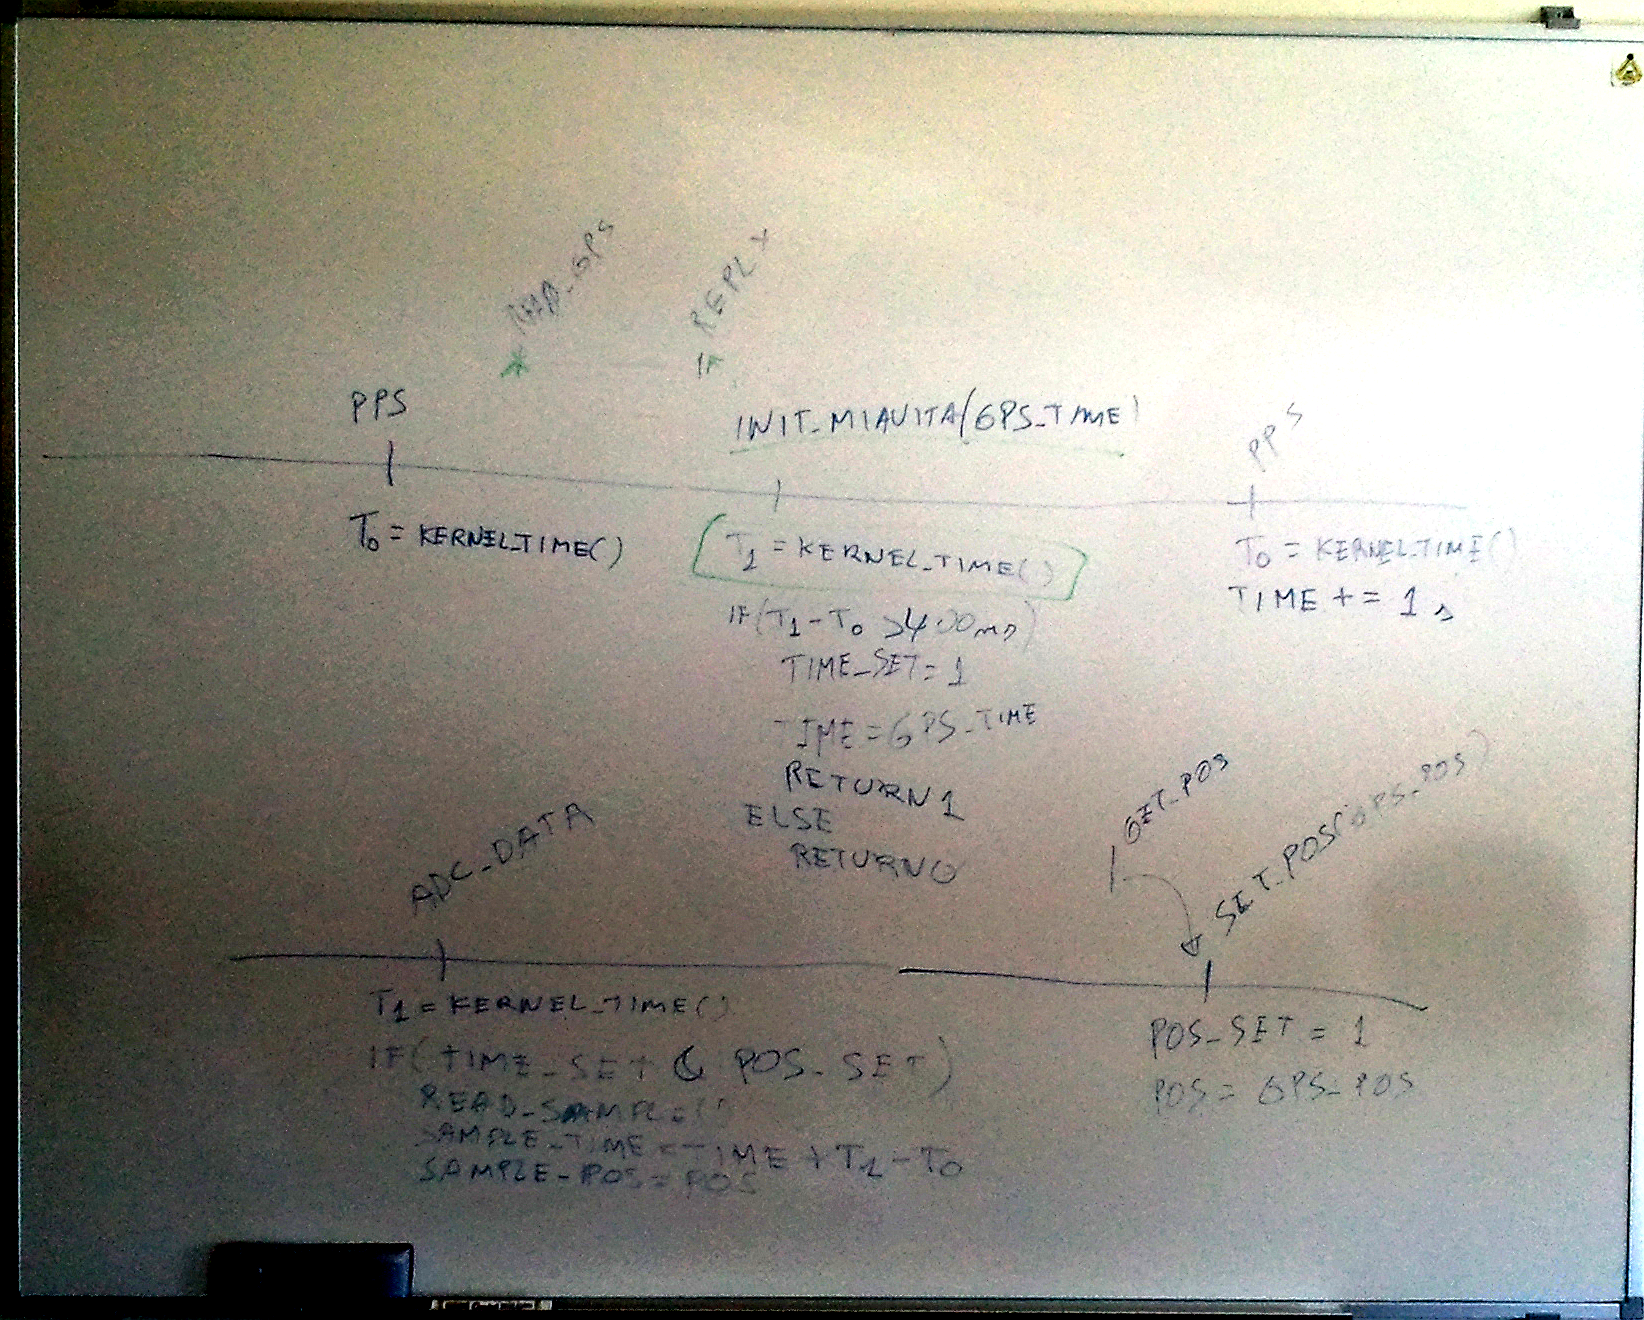 READ_GPS
REPLY
PPS
INIT_MIAVITA(GPS_TIME)
PPS
T0 = KERNEL_TIME()
T1 = KERNEL_TIME()
IF(T1-T0 >400ms)
TIME_SET=1
TIME=GPS_TIME
RETURN 1
ELSE
RETURN 0
T0 = KERNEL_TIME()
TIME += 1s
ADC_DATA
T1 = KERNEL_TIME()
IF(TIME_SET & POS_SET)
READ_SAMPLE()
SAMPLE_TIME=TIME+T1-T0
SAMPLE_POS=POS
GET_POS
SET_POS(GPS_POS)
POS_SET = 1
POS = GPS_POS